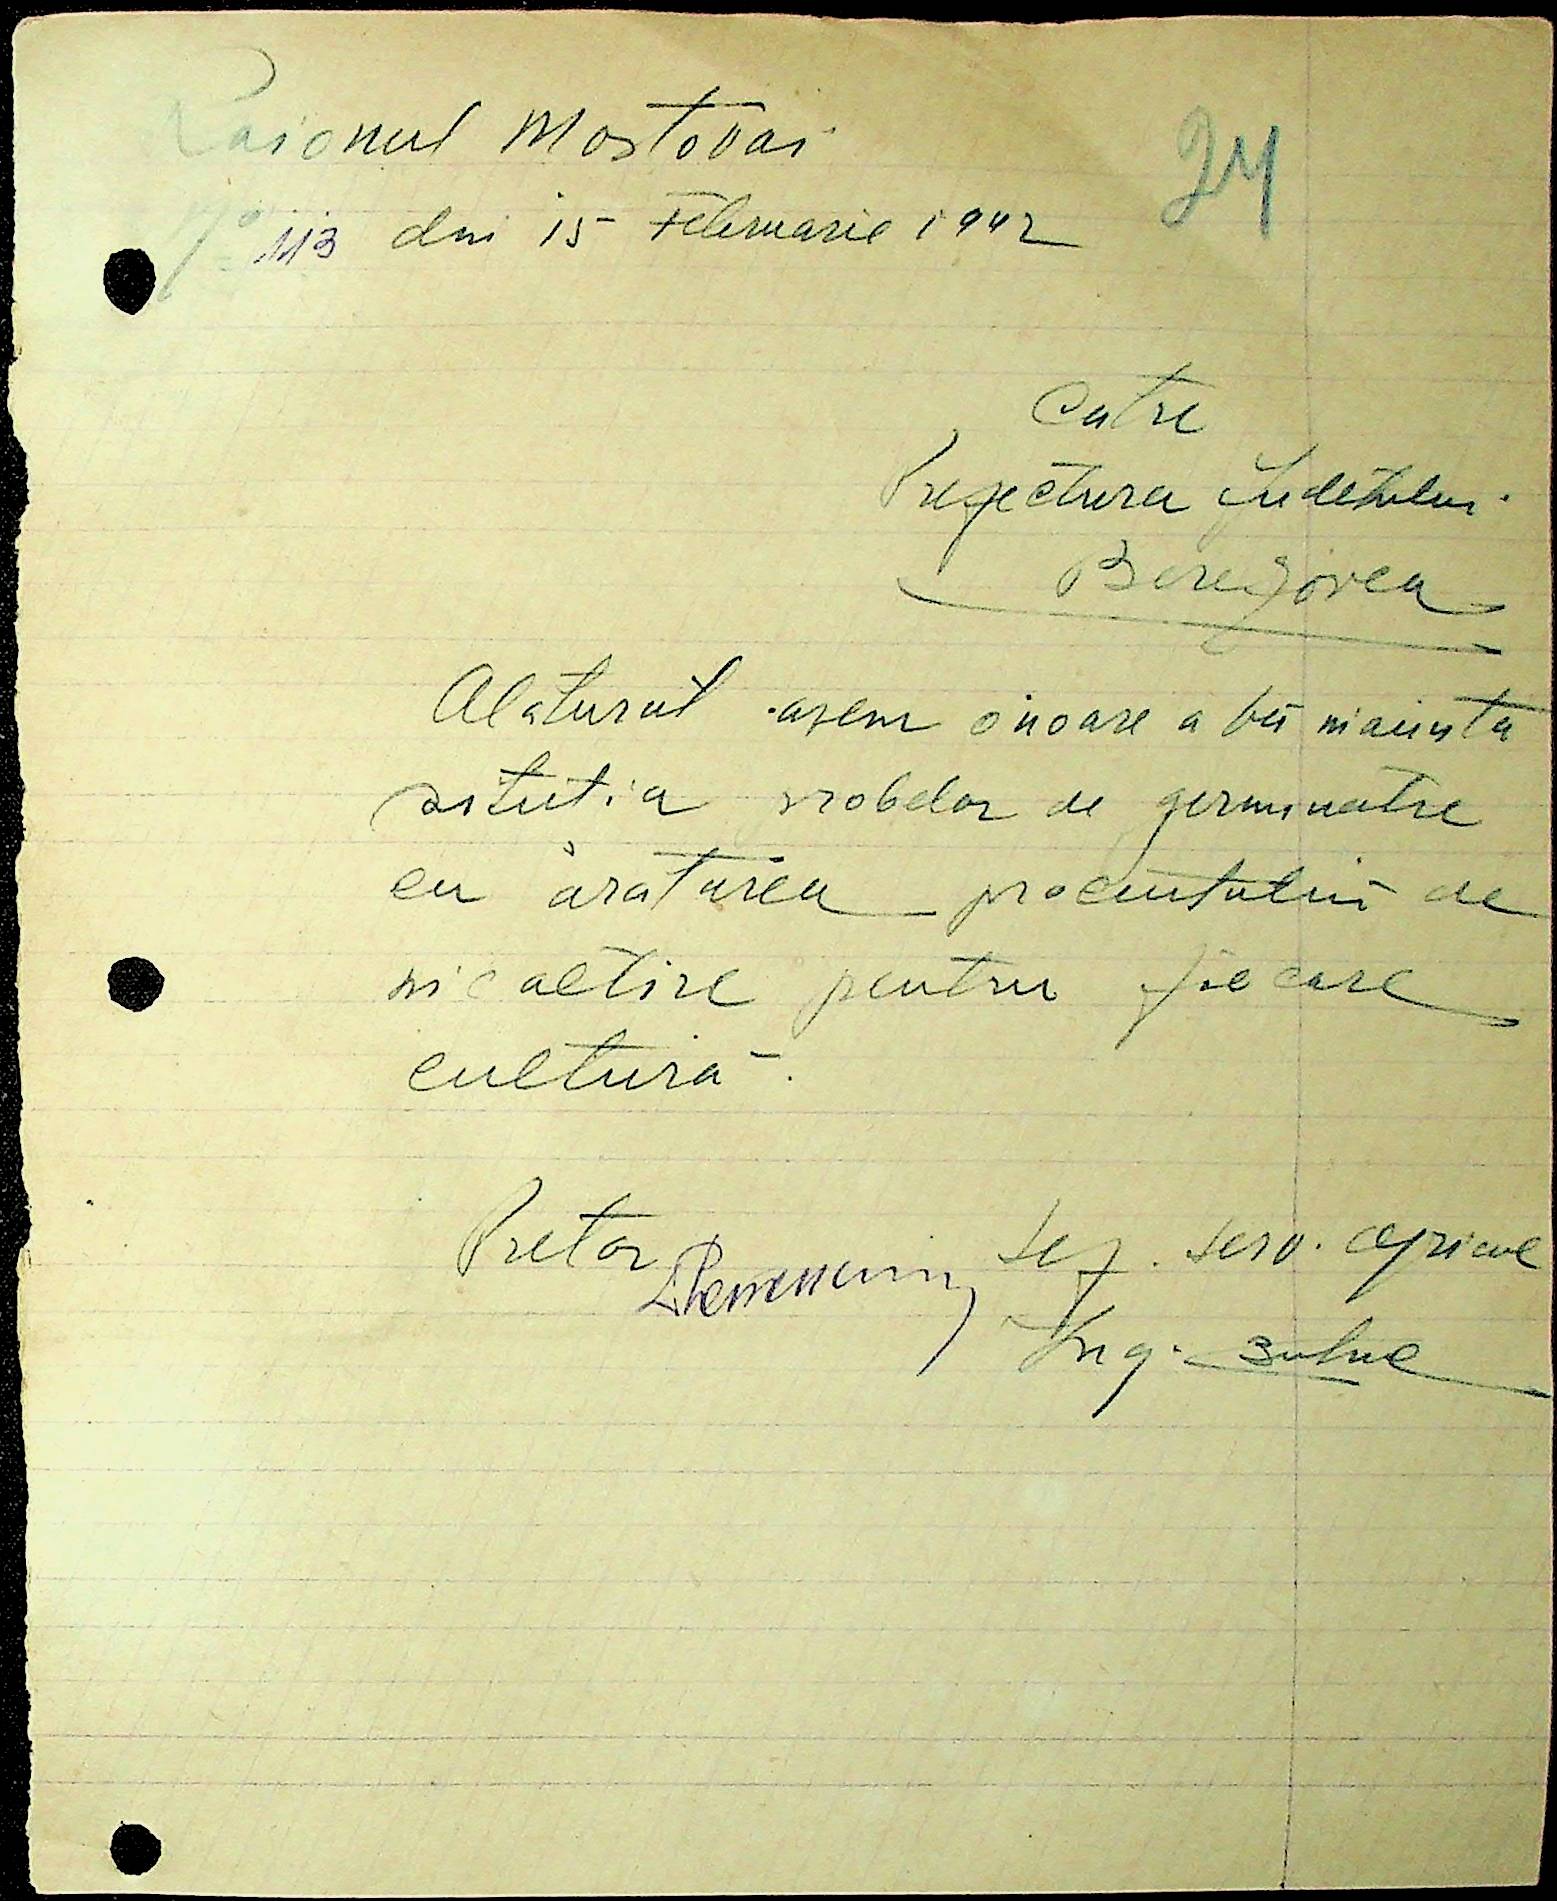 Raionul Mostovai
24
No 113 din 15 Februarie 1942
Catre
Prefectura Judetului
Beregovca
Alaturat avem onoare a va nainta
situatia probelor de germinatie
cu aratarea procentului de
incaltire pentru fiecare
cultură.
Pretor Sef. serv. agricol
Ing.